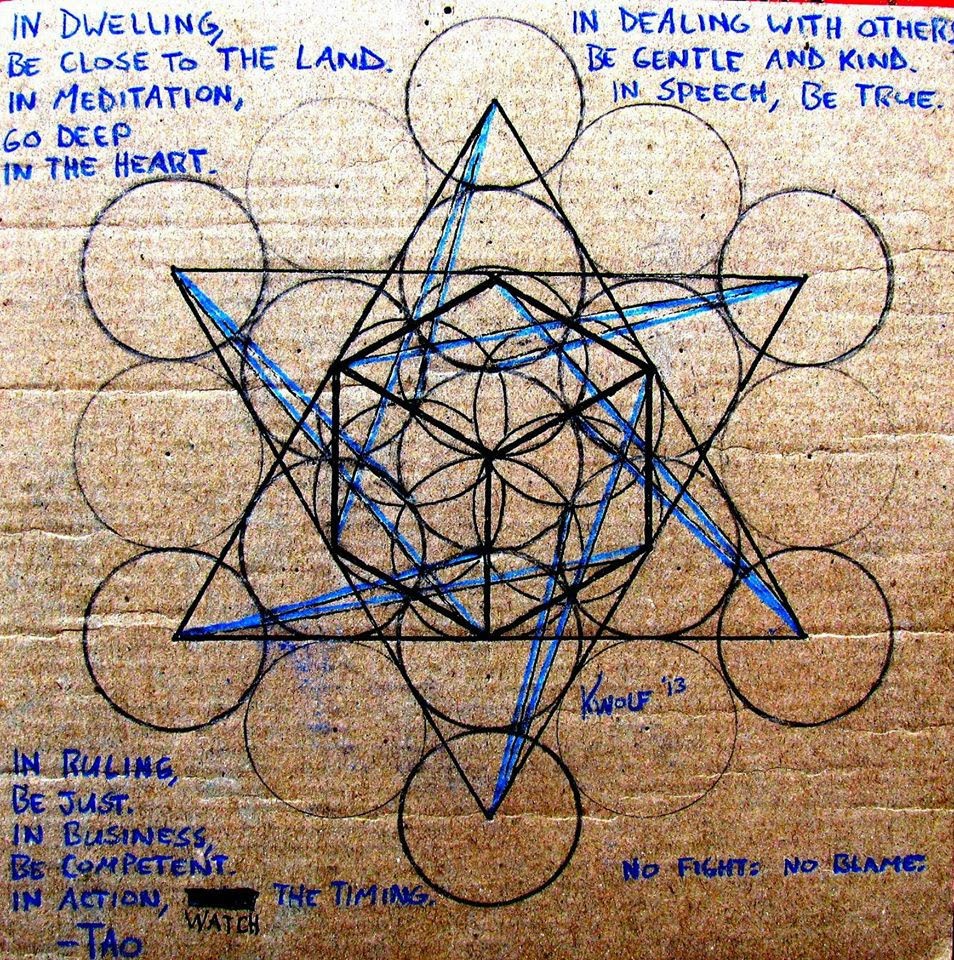 IN DWELLING,
BE CLOSE TO THE LAND.
IN MEDITATION,
GO DEEP
IN THE HEART.
IN DEALING WITH OTHERS
BE GENTLE AND KIND.
IN SPEECH, BE TRUE.
KWOLF '13
IN RULING,
BE JUST.
IN BUSINESS,
BE COMPETENT.
IN ACTION, WATCH THE TIMING.
-TAO
NO FIGHT: NO BLAME: